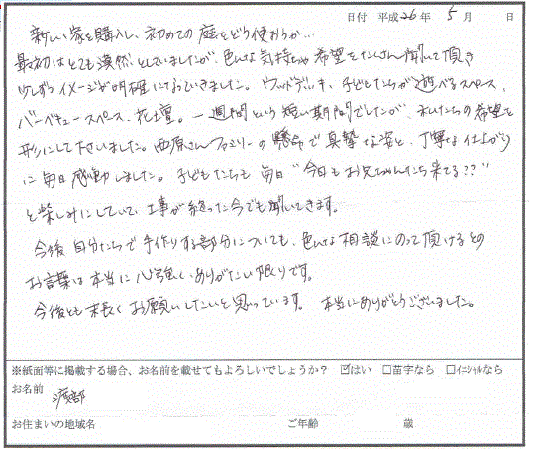 日付 平成26年 5月 日
新しい家を購入し、初めての庭をどう使おうか…
最初はとても漠然としていましたが、色んな気持ちや希望をたくさん聞いて頂き
少しずつイメージが明確になっていきました。ウッドデッキ、子どもたちが遊べるスペース、
バーベキュースペース、花壇。一週間という短い期間でしたが、私たちの希望を
形にして下さいました。西原さんファミリーの懸命で真摯な姿と、丁寧な仕上がり
に毎日感動しました。子どもたちも毎日“今日もお兄ちゃんたち来てる??”
と楽しみにしていて、工事が終った今でも聞いてきます。
今後自分たちで手作りする部分についても、色んな相談にのって頂けるとの
お言葉は本当に心強く、ありがたい限りです。
今後とも末長くお願いしたいと思っています。 本当にありがとうございました。
※紙面等に掲載する場合、お名前を載せてもよろしいでしょうか? ☑はい □苗字なら □イニシャルなら
お名前 渡部
お住まいの地域名 ご年齢 歳